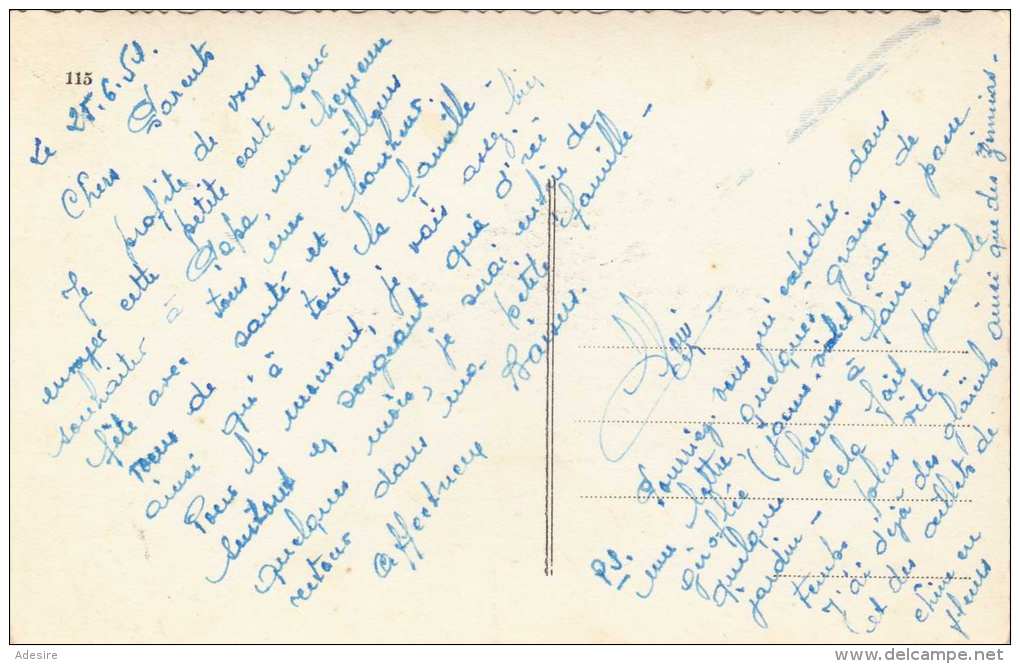 115
Le 25.6.51.
Chers Parents
Je profite de vous
envoyer cette petite carte pour
souhaiter à Papa, une heureuse
fête avec tous mes meilleurs
voeux de santé et bonheur
ainsi qu'à toute la famille -
Pour le moment, je vais assez bien
surtout en songeant qu'à d'ici
quelques mois, je serai en
retour dans ma petite famille -
Affectueux baisers.
P.S. Pourriez-vous m'expédier dans
une lettre, quelques graines de
giroflée (jaune-violet) car je passe
quelques heures à faire du
jardin - cela fait passer le
temps plus vite -
J'ai déjà des plants
et des oeillets de
chine en
fleurs
ainsi que des zinnias.
Adesire
delcampe.net